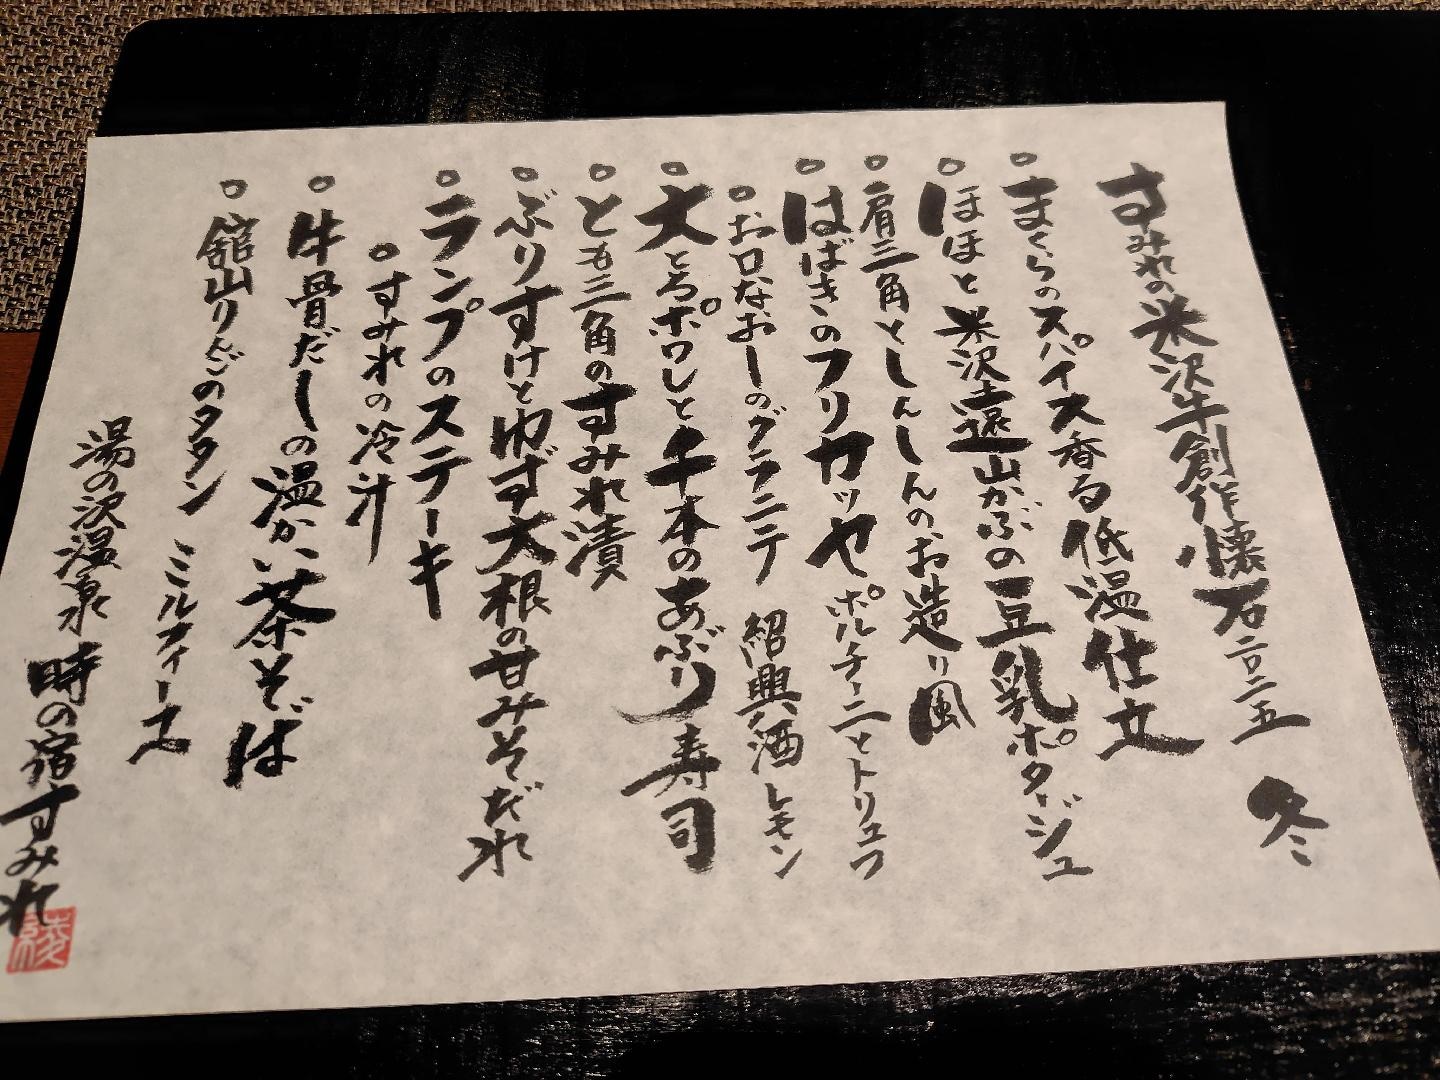 すみれの米沢牛創作懐石二〇二五 冬
○まくらのスパイス香る低温仕立
○ほほと米沢遠山かぶの豆乳ポタージュ
○肩三角としんしんのお造り風
○はばきのフリカッセ ポルチーニとトリュフ
○お口なおしのグラニテ 紹興酒レモン
○大とろポワレと千本のあぶり寿司
○とも三角のすみれ漬
○ぶりすけとゆず大根の甘みそだれ
○ランプのステーキ
○すみれの冷汁
○牛骨だしの温かい茶そば
○舘山りんごのタタン ミルフィーユ
湯の沢温泉 時の宿すみれ
綾